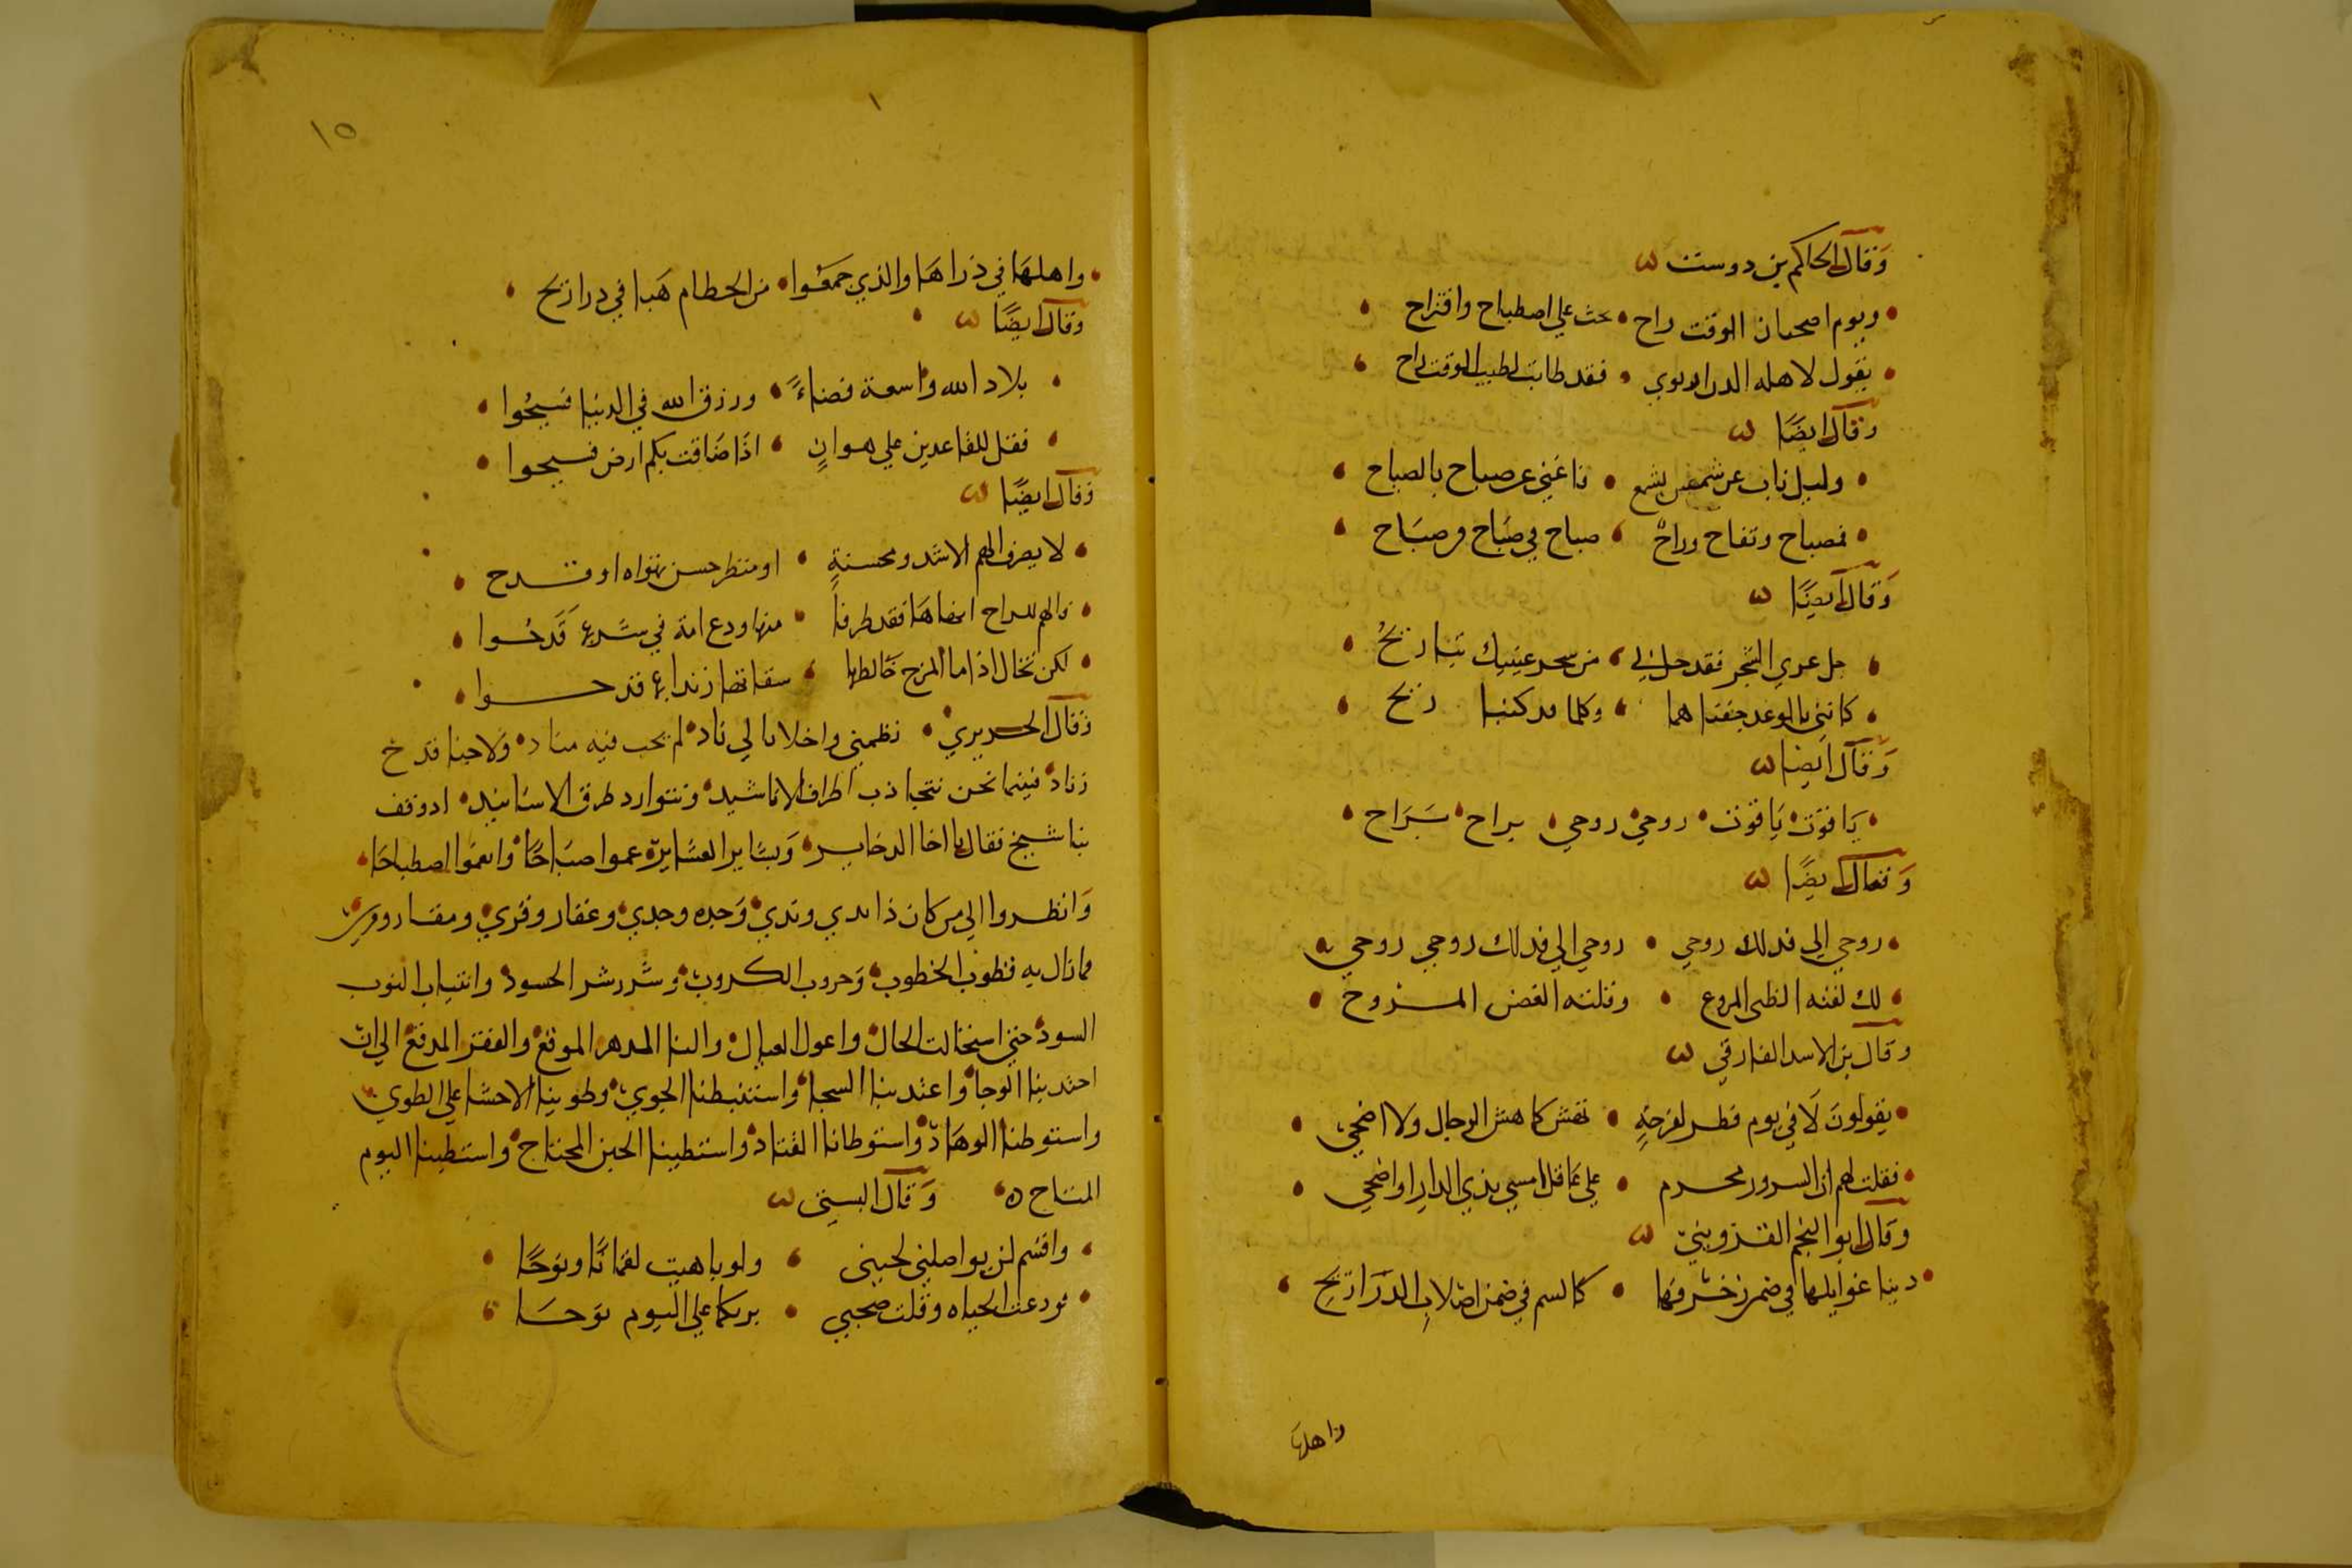 وقال الحاكم بن دوست
ويوم اصحيان الوقت راح يحث علي اصطباح واقتراح
يقول لاهله فقد طابت لطيب الوقت راح
وقال ايضا
وليل ناب عن شمس بشمع فاغني عن صباح بالصباح
فمصباح وتفاح وراح صباح في صباح من صباح
وقال ايضا
حل عري الهجر فقد حل لي من سحر عينيك تباريح
كانني بالوعد جفناهما وكلما ريح
وقال ايضا
يا قوت ياقوت روحي روحي براح براح
وقال ايضا
روحي الي روحي روحي الي روحي روحي
لك لفته الظبي المروع وفتنته الغصن المروح
وقال بن الاسد الفارقي
يقولون لا في يوم فطر لفرحة تهش كما هش الرجال ولا اضحي
فقلت لهم ان السرور محرم علي عاقل امسي بذي الدار او اضحي
وقال ابو النجم القزويني
دنيا غوايلها في ضمن زخرفها كالسم في ضمن اصلاب الذراريح
واهلها
١٥
واهلها في ذراها والذي جمعوا من الحطام هبا في ذرا ريح
وقال ايضا
بلاد الله واسعة فضاء ورزق الله في الدنيا فسيح
فقل للقاعدين علي هوان اذا ضاقت بكم ارض فسيحوا
وقال ايضا
لا يصرف الهم الا شدو محسنة او منظر حسن تهواه او قدح
والهم للراح فقد طرفا منها ودع امة في شربها قدحوا
لكن تخال اذا ما المزج خالطها سقاتها زندا بها قدحوا
وقال الحريري نظمني واخدانا لي ناد لم يخب فيه مناد ولا خبا قدح
زناد فبينما نحن نتجاذب اطراف الاناشيد ونتوارد طرق الاسانيد اذ وقف
بنا شيخ فقال يا اخا الدخاير وبشاير العشاير عموا صباحا وانعموا اصطباحا
وانظروا الي من كان ذا ندي وندي وجده وجدي وعقار وقري ومقار وقري
فما زال به قطوب الخطوب وحروب الكروب وشرر شر الحسود وانتياب النوب
السود حتي استحالت الحال واعول العيال والنا الدهر الموقع والفقر المدقع الي ان
احتذينا الوجا واغتذينا الشجا واستبطنا الجوي وطوينا الاحشا علي الطوي
واستوطنا الوهاد واستوطانا القتاد واستطبنا الحين المجتاح واستبطينا اليوم
المتاح ه وقال البستي
واقسم لن يواصلني لحيني ولو باهيت لقمانا ونوحا
فودعت الحياه وقلت صحبي بربكما علي اليوم نوحا